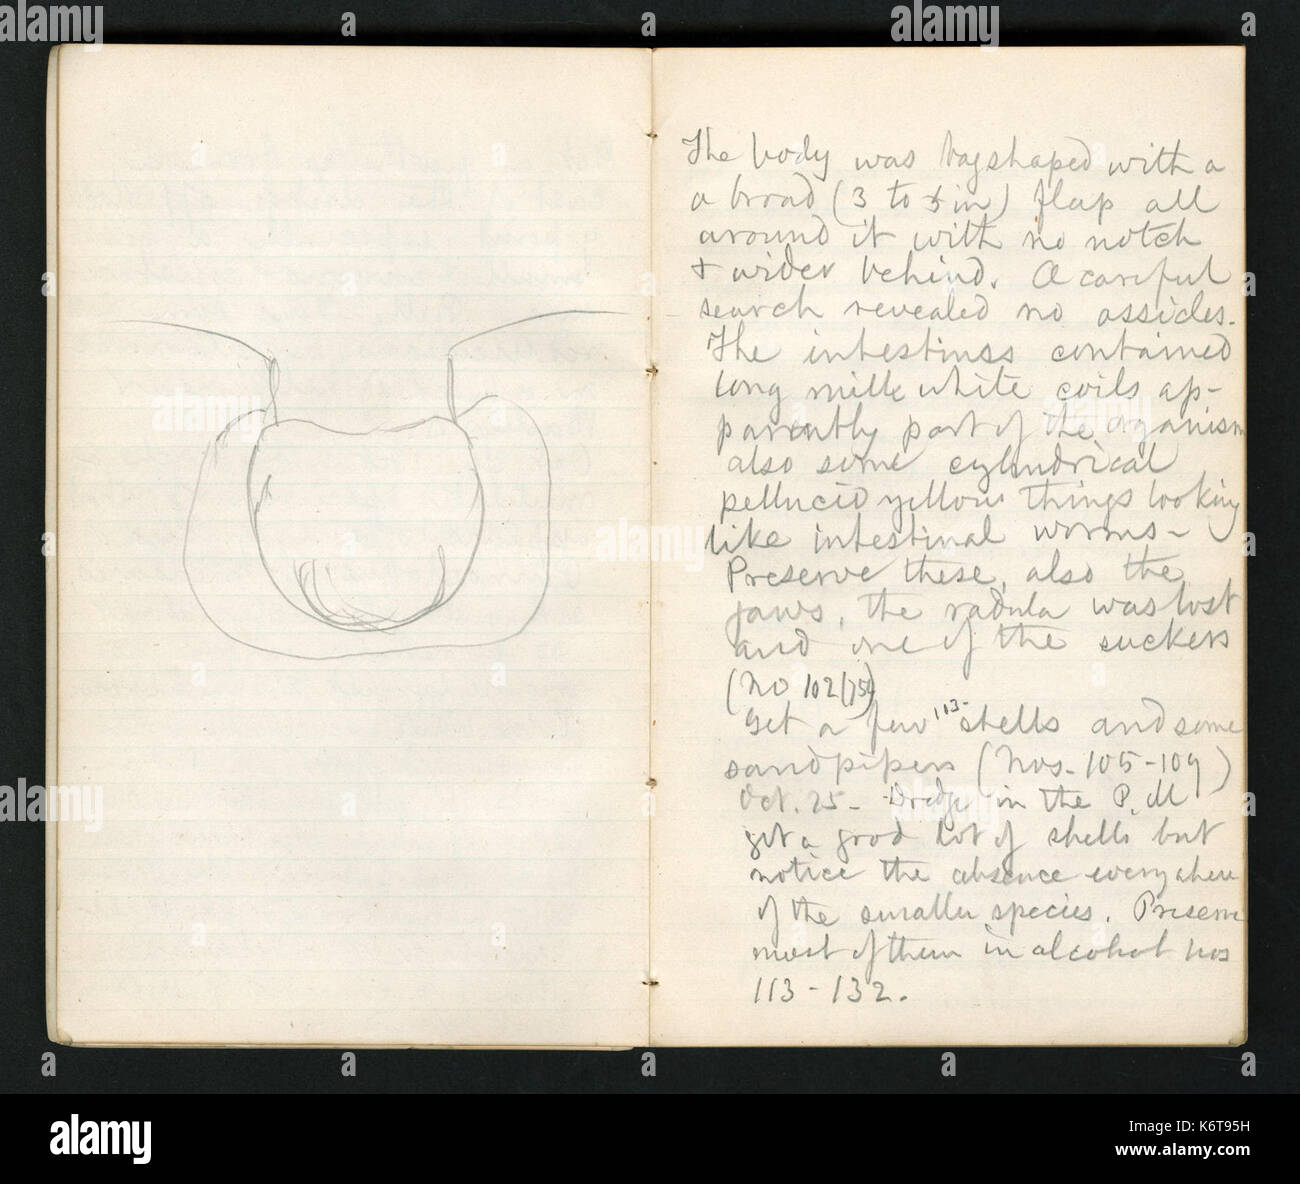 The body was bagshaped with a
a broad (3 to 5 in) flap all
around it with no notch
& wider behind. A careful
search revealed no ossicles.
The intestines contained
long milk white coils ap-
parently part of the organism
also some cylindrical
pellucid yellow things looking
like intestinal worms -
Preserve these, also the
jaws, the radula was lost
and one of the suckers
(No 102(754)
113-
Get a few shells and some
sandpipers (Nos. 105-109)
Oct. 25 - Dredge in the P.M
get a good lot of shells but
notice the absence everywhere
of the smaller species. Preserve
most of them in alcohol nos
113-132.
alamy
alamy stock photo
K6T95H
www.alamy.com